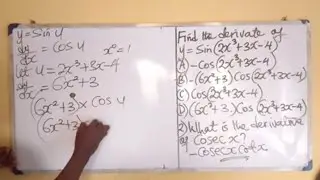 y=Sin u
dy/dx = Cos u x⁰=1
Let u = 2x³+3x-4
du/dx = 6x²+3
(6x²+3) x Cos u
(6x²+3)
Find the derivate of
y=Sin(2x³+3x-4)
A) -Cos(2x³+3x-4)
B) -(6x²+3)Cos(2x³+3x-4)
C) Cos(2x³+3x-4)
D) (6x²+3)Cos(2x³+3x-4)
2) What is the derivative
of Cosec x?
- Cosec x Cot x